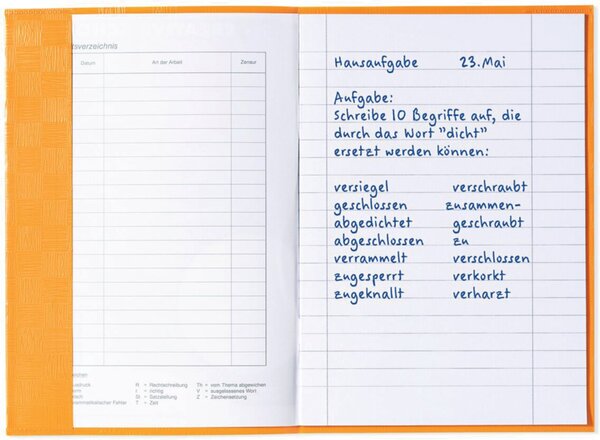 tsverzeichnis
Datum Art der Arbeit Zensur
zeichen
usdruck R = Rechtschreibung Th = vom Thema abgewichen
orm r = richtig V = ausgelassenes Wort
St = Satzstellung Z = Zeichensetzung
rammatikalischer Fehler T = Zeit
Hausaufgabe 23.Mai
Aufgabe:
Schreibe 10 Begriffe auf, die
durch das Wort "dicht"
ersetzt werden können:
versiegel verschraubt
geschlossen zusammen-
abgedichtet geschraubt
abgeschlossen zu
verrammelt verschlossen
zugesperrt verkorkt
zugeknallt verharzt